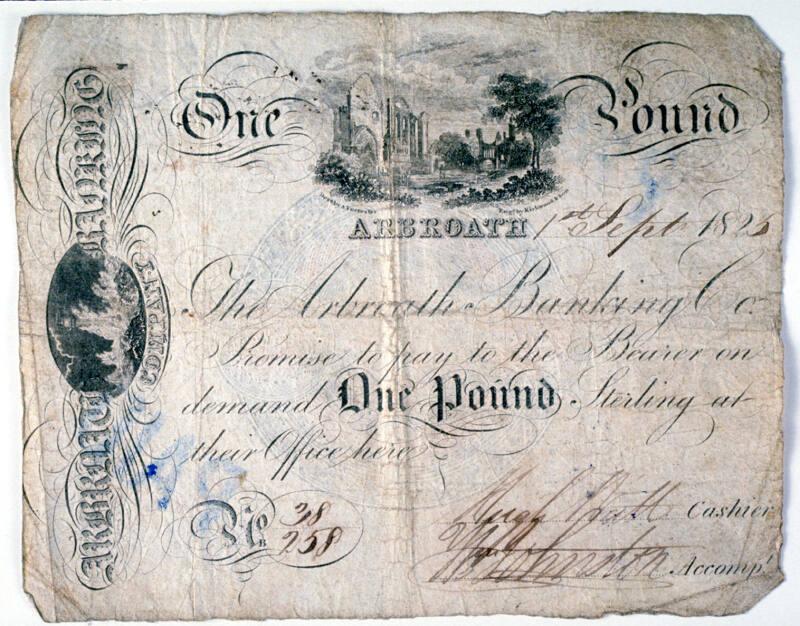 One Pound
ARBROATH 1st Sept 1825
The Arbroath Banking Co.
Promise to pay to the Bearer on
demand One Pound Sterling at
their Office here
No 38
258
Hugh Cashier
Wm Johnston Accompt
ARBROATH BANKING
COMPANY